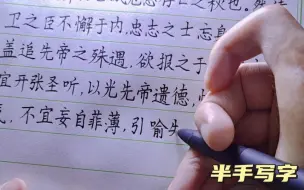 卫之臣不懈于内，忠志之士忘身
盖追先帝之殊遇，欲报之于
宜开张圣听，以光先帝遗德，
不宜妄自菲薄，引喻失
半手写字